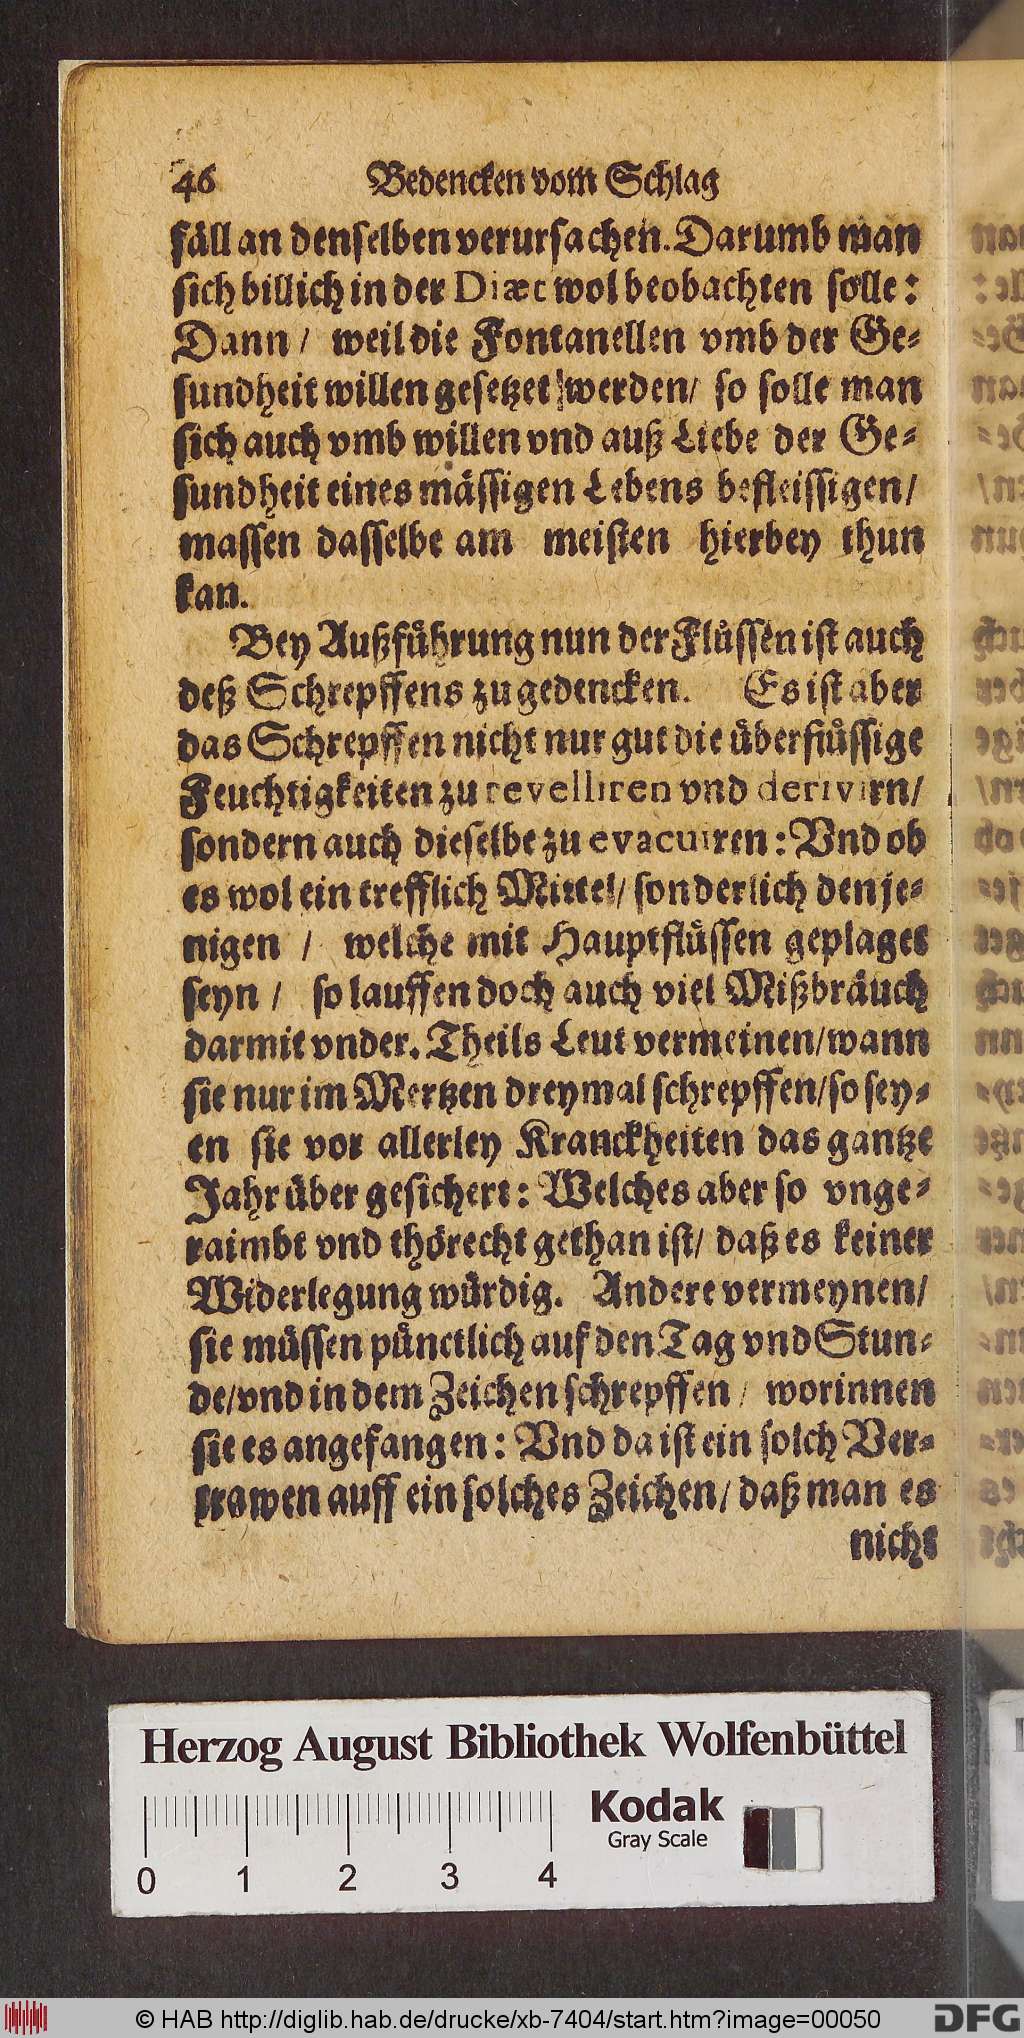 46 Bedencken vom Schlag
fäll an denselben verursachen. Darumb man
sich billich in der Diæt wol beobachten solle:
Dann / weil die Fontanellen vmb der Ge-
sundheit willen gesetzet werden/ so solle man
sich auch vmb willen vnd auß Liebe der Ge-
sundheit eines mässigen Lebens befleissigen/
massen dasselbe am meisten hierbey thun
kan.
Bey Außführung nun der Flüssen ist auch
deß Schrepffens zu gedencken. Es ist aber
das Schrepffen nicht nur gut die überflüssige
Feuchtigkeiten zu revelliren vnd derivirn/
sondern auch dieselbe zu evacuiren: Vnd ob
es wol ein trefflich Mittel/ sonderlich denje-
nigen / welche mit Hauptflüssen geplaget
seyn / so lauffen doch auch viel Mißbräuch
darmit vnder. Theils Leut vermeinen/wann
sie nur im Mertzen dreymal schrepffen/so sey-
en sie vor allerley Kranckheiten das gantze
Jahr über gesichert: Welches aber so vnge-
raimbt vnd thörecht gethan ist/ daß es keiner
Widerlegung würdig. Andere vermeynen/
sie müssen pünctlich auf den Tag vnd Stun-
de/vnd in dem Zeichen schrepffen / worinnen
sie es angefangen: Vnd da ist ein solch Ver-
trawen auff ein solches Zeichen/ daß man es
nicht
Herzog August Bibliothek Wolfenbüttel
Kodak
Gray Scale
0 1 2 3 4
© HAB http://diglib.hab.de/drucke/xb-7404/start.htm?image=00050
DFG